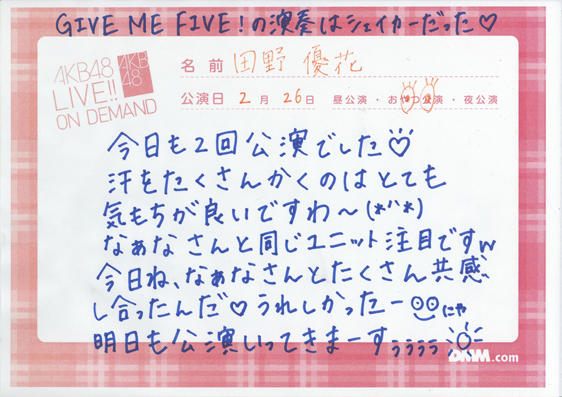 GIVE ME FIVE!の演奏はシェイカーだった♡
AKB48
LIVE!!
ON DEMAND
AKB
48
名前 田野 優花
公演日 2月 26日 昼公演・おやつ公演・夜公演
今日も2回公演でした♡
汗をたくさんかくのはとても
気もちが良いですわ〜(*'^'*)
なぁなさんと同じユニット注目ですw
今日ね、なぁなさんとたくさん共感
し合ったんだ♡うれしかったー にゃ
明日も公演いってきまーすぅぅぅぅ
DMM.com